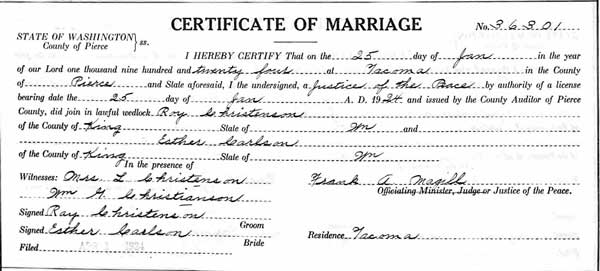 CERTIFICATE OF MARRIAGE
No. 36301
STATE OF WASHINGTON
County of Pierce } ss.
I HEREBY CERTIFY That on the 25 day of Jan in the year
of our Lord one thousand nine hundred and twenty four at Tacoma in the County
of Pierce and State aforesaid, I the undersigned, a Justice of the Peace by authority of a license
bearing date the 25 day of Jan A. D. 1924 and issued by the County Auditor of Pierce
County, did join in lawful wedlock Roy Christenson
of the County of King State of Wn and
Esther Carlson
of the County of King State of Wn
In the presence of
Witnesses: Mrs L Christenson
Wm G Christianson
Frank A. Magill
Officiating Minister, Judge or Justice of the Peace.
Signed Ray Christenson Groom
Signed Esther Carlson Bride
Residence Tacoma
Filed 1924